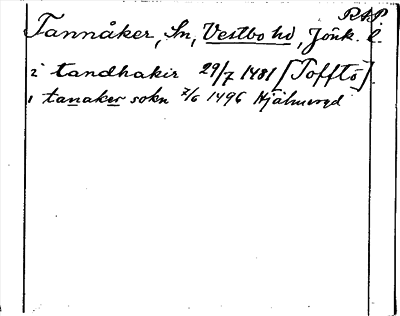 RAP
Tannåker, Sn, Vestbo hd, Jönk. l.
i tandhakir 29/7 1481 [Tofftö].
i tanaker sokn 7/6 1496